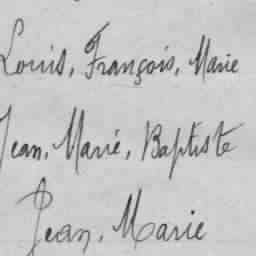 Louis, François, Marie
Jean, Marié, Baptiste
Jean, Marie